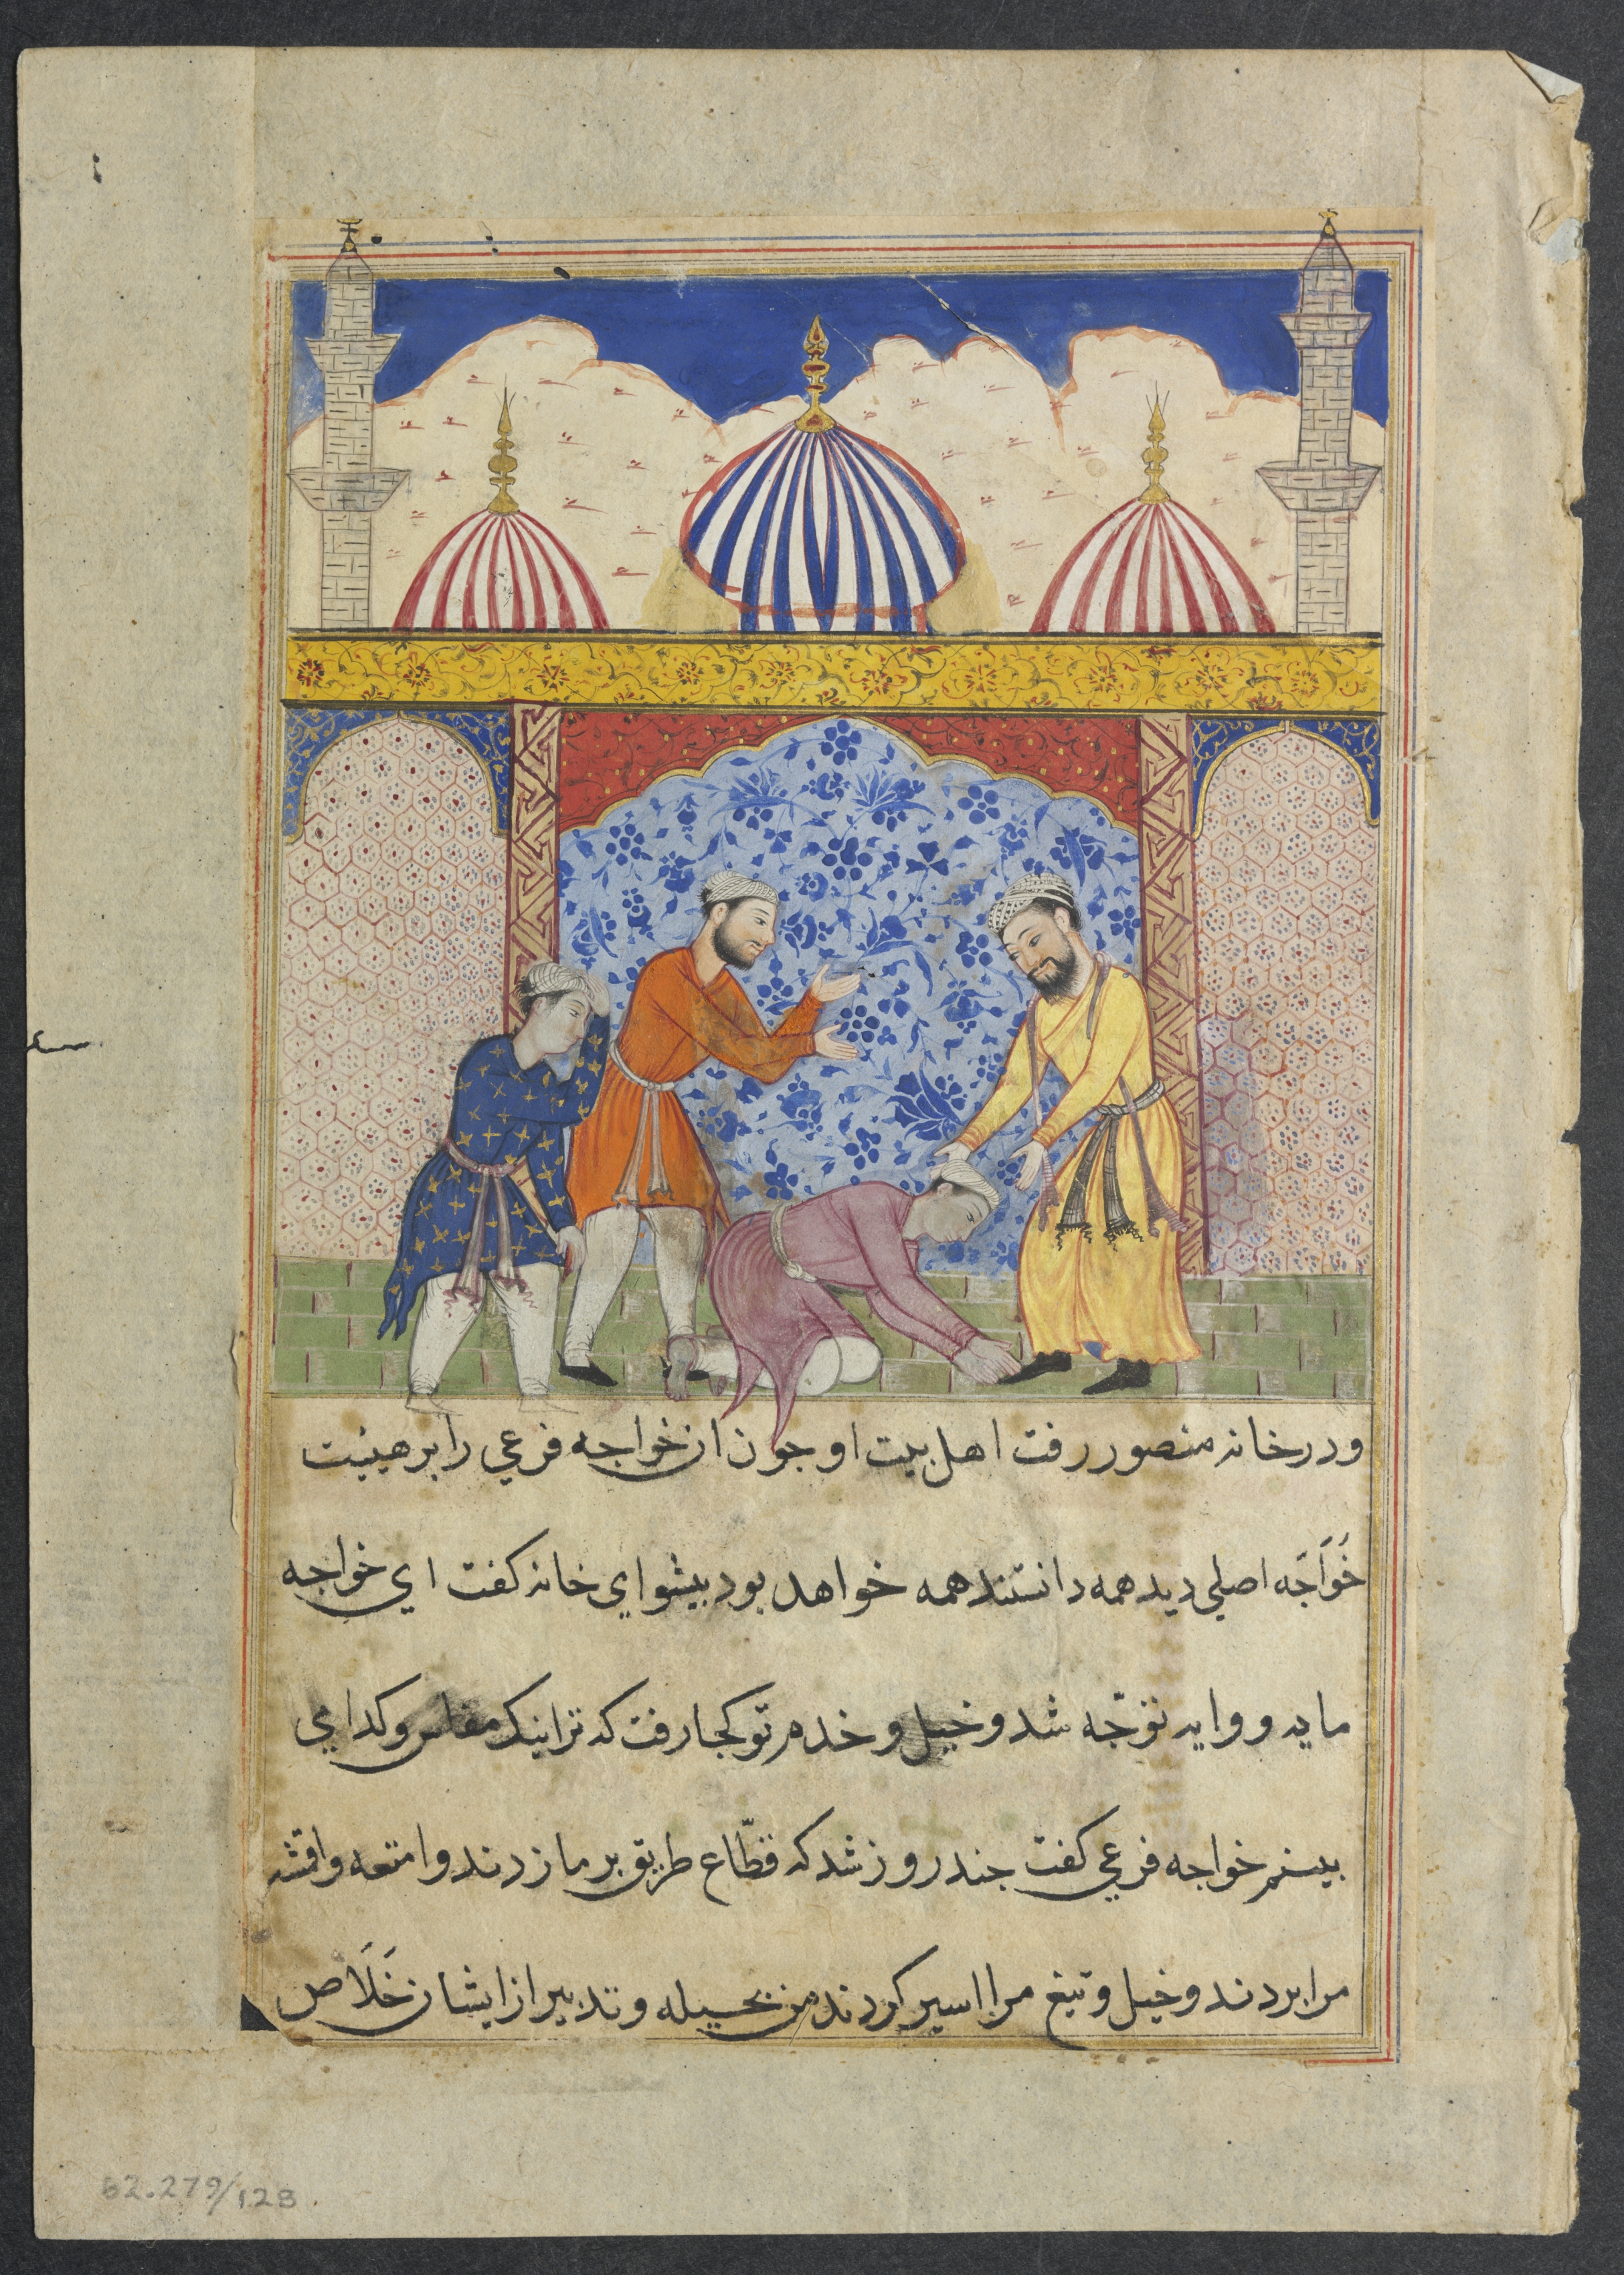 ودرخانه منصور رفت اهل بیت او جون ان خواجه فرعي را بر هیئت
خَوَاجَه اصلي دیدهمه دانستندهمه خواهد بود بیشواي خانه کفت اي خواجه
مایه و وایه توجّه شد وخیل و خدم تو کجا رفت که ترا نیک مفلس وکدا مي
بینم خواجه فرعي کفت جند روز شد که قطّاع طریق بر ما زدند و امتعه واقمشه
مرا بردند وخیل وتیغ مرا اسیر کردند من بحیله و تدبیر از ایشان خَلَاص
62.279/128.